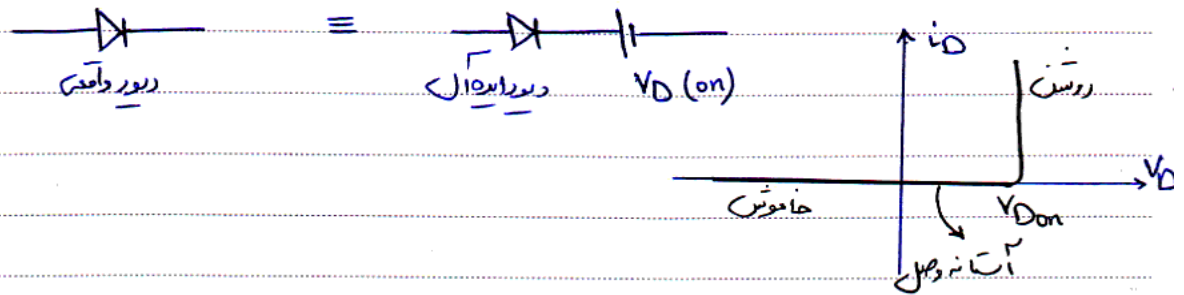 ≡
i_D
دیود واقعی
دیود ایده‌آل
V_D (on)
روشن
V_D
خاموش
V_Don
آستانه وصل